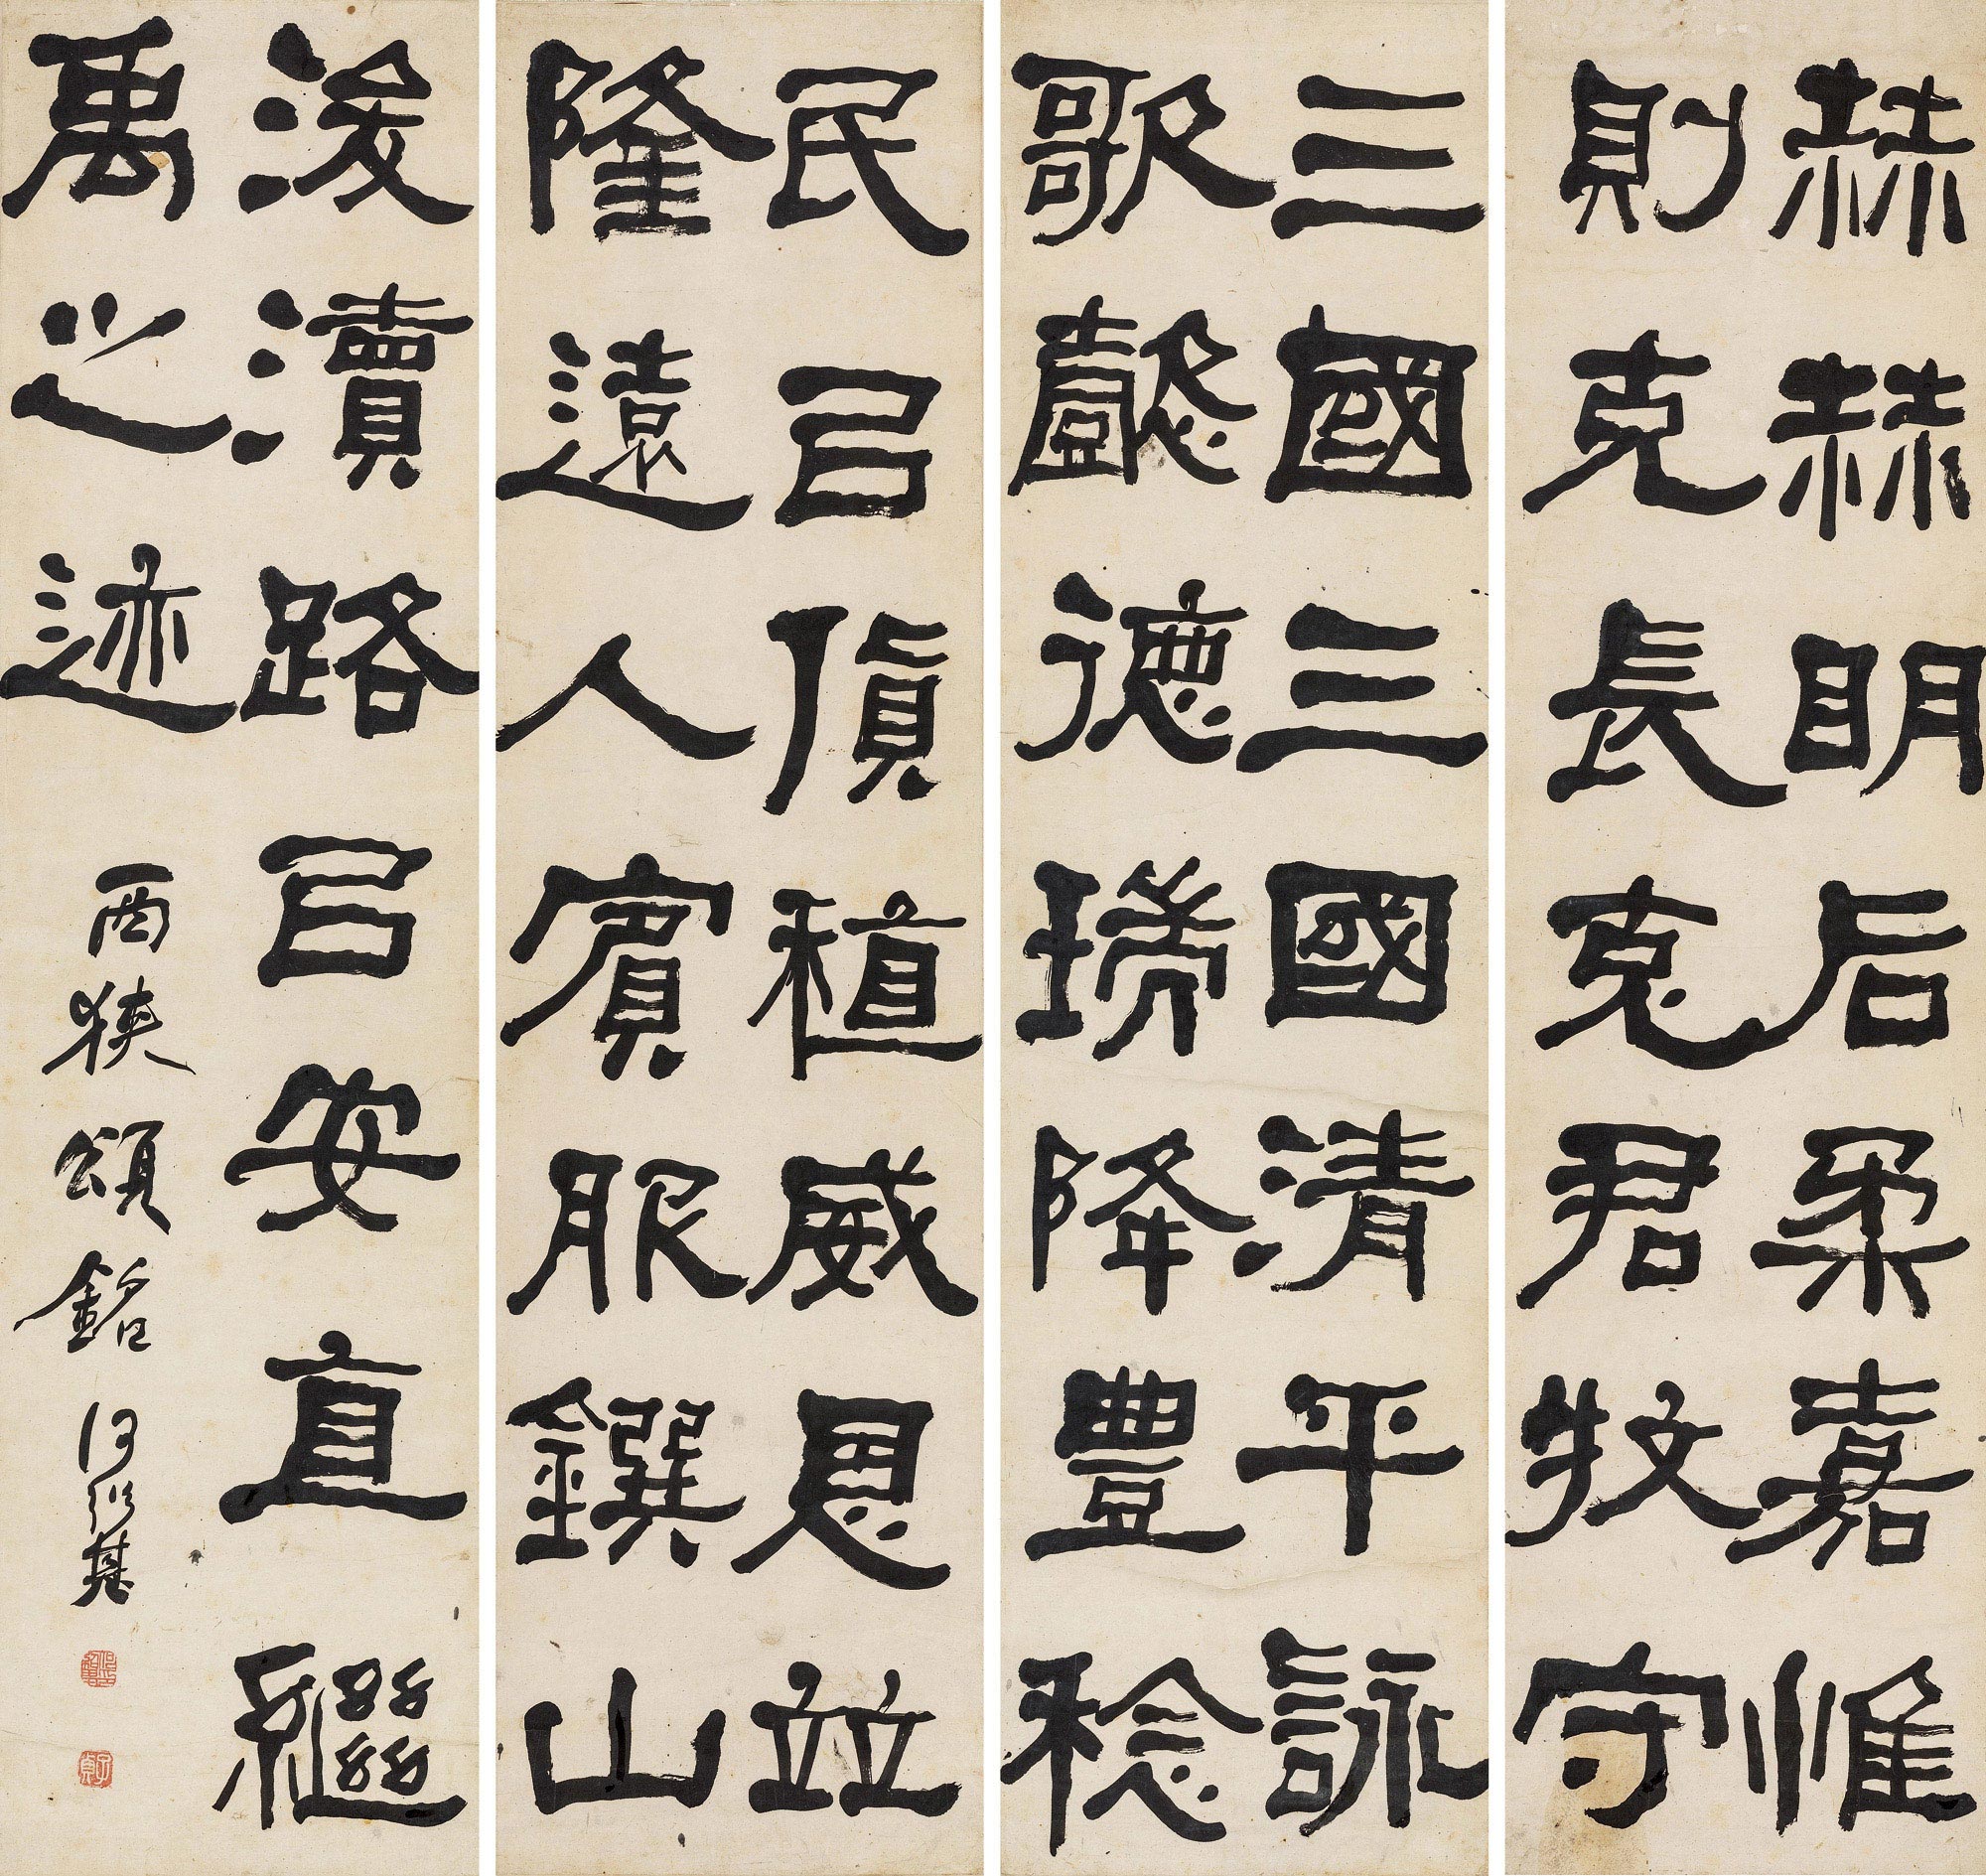 赫赫明后柔嘉惟
則克長克君牧守
三國三國清平詠
歌懿德瑞降豐稔
民㠯貨稙威恩並
隆遠人賓服鐉山
浚瀆路㠯安直繼
禹之迹
西狹頌銘 何紹基
子貞